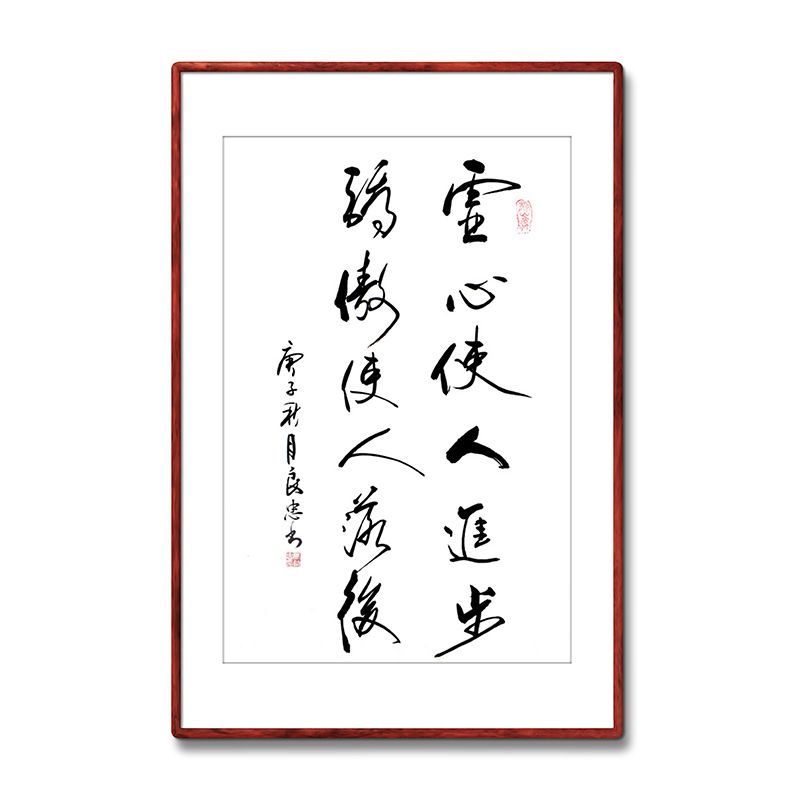 虚心使人進步
驕傲使人落後
庚子秋月良忠书